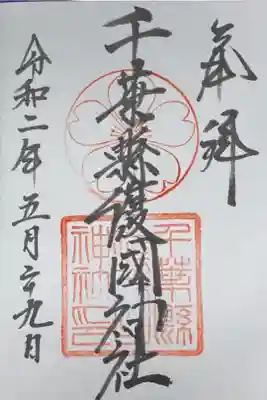 奉拝
千葉縣護國神社
令和二年五月二十九日
千葉縣
護國
神社印